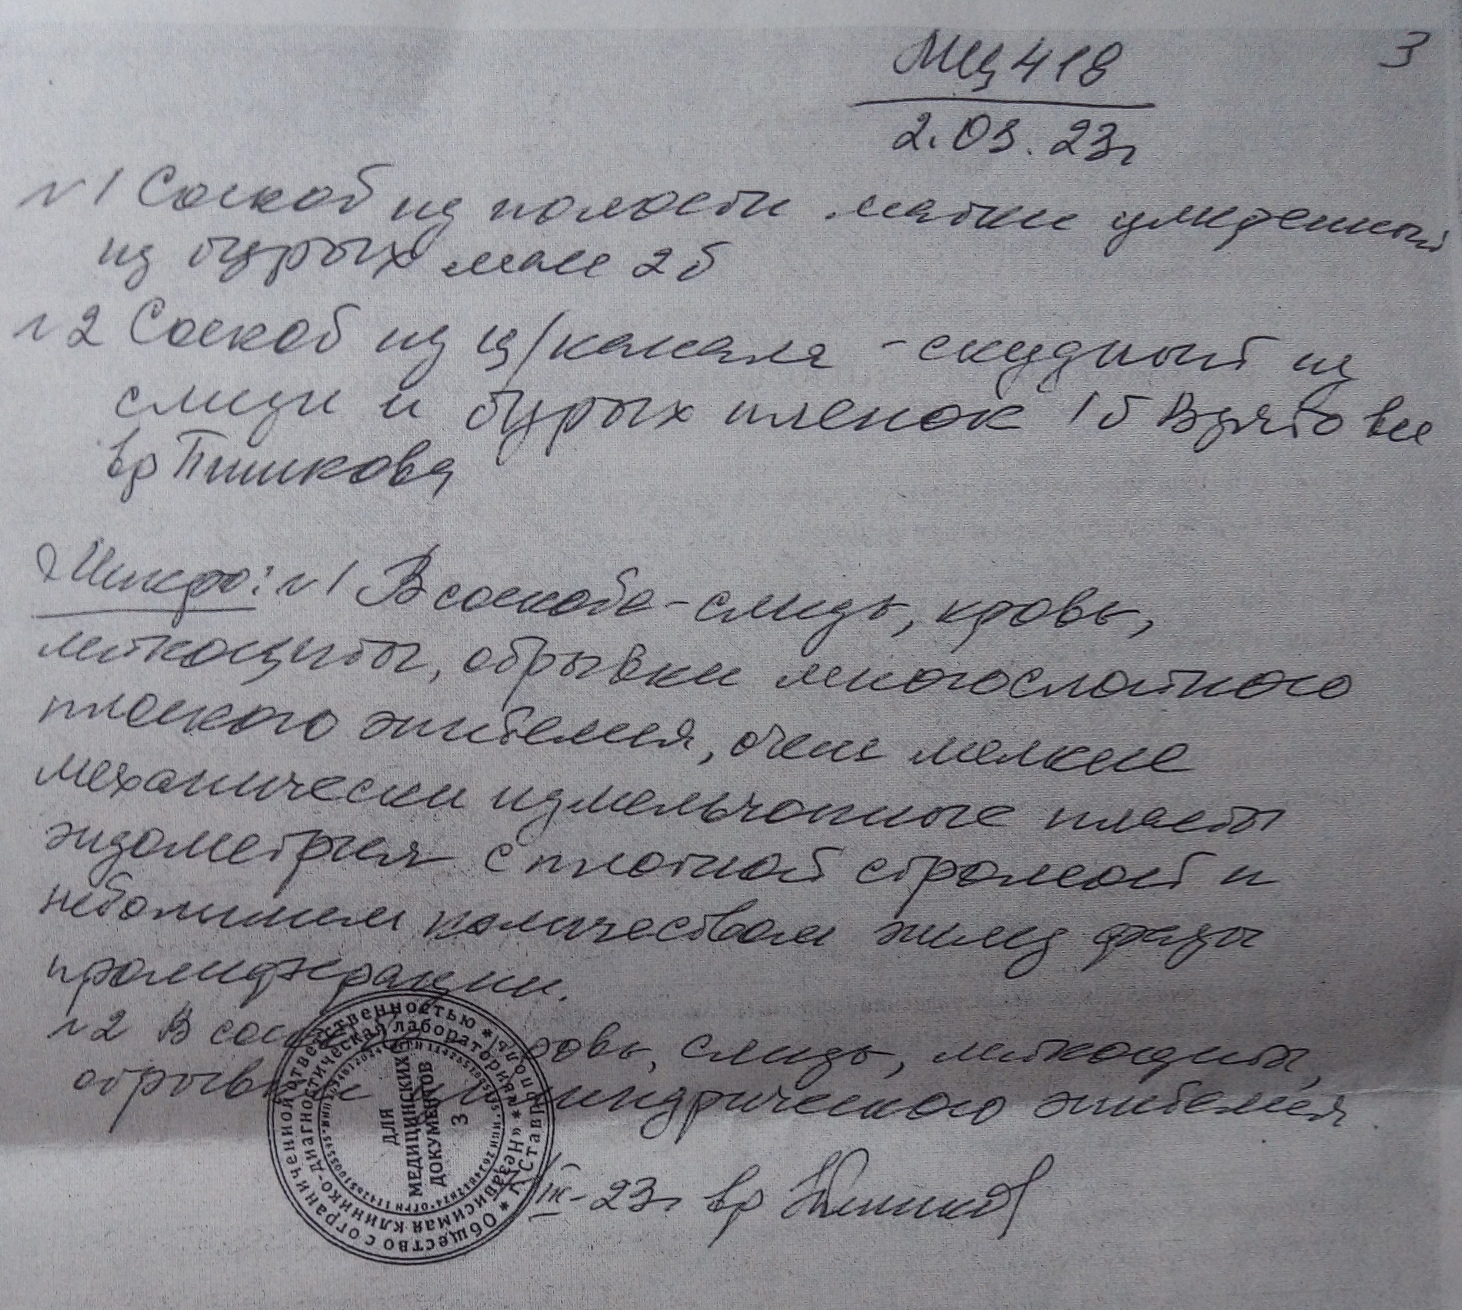 МЦ 418
3
2.03.23г
№1 Соскоб из полости матки умеренный
из бурых масс 2б
№2 Соскоб из ц/канала - скудный из
слизи и бурых пленок 1б Взято все
вр Пшикова
Микро: №1 В соскобе - слизь, кровь,
лейкоциты, обрывки многослойного
плоского эпителия, очень мелкие
механически измельчонные пласты
эндометрия с плотной стромой и
небольшим количеством желез фазы
пролиферации.
№2 В кровь, слизь, лейкоциты,
обрывки цилиндрического эпителия
III-23г вр
Общество с ограниченной ответственностью
«Независимая клинико-диагностическая лаборатория»
г. Ставрополь
ДЛЯ
МЕДИЦИНСКИХ
ДОКУМЕНТОВ
3